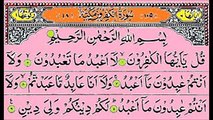 سُورَةُ الْكٰفِرُوْنَ مَكِّيَّةٌ
بِسْمِ اللّٰهِ الرَّحْمٰنِ الرَّحِيْمِ
قُلْ يٰۤاَيُّهَا الْكٰفِرُوْنَ لَاۤ اَعْبُدُ مَا تَعْبُدُوْنَ وَلَاۤ
اَنْتُمْ عٰبِدُوْنَ مَاۤ اَعْبُدُ وَلَاۤ اَنَا عَابِدٌ مَّا عَبَدْتُّمْ وَلَاۤ
اَنْتُمْ عٰبِدُوْنَ مَاۤ اَعْبُدُ لَكُمْ دِيْنُكُمْ وَلِيَ دِيْنِ